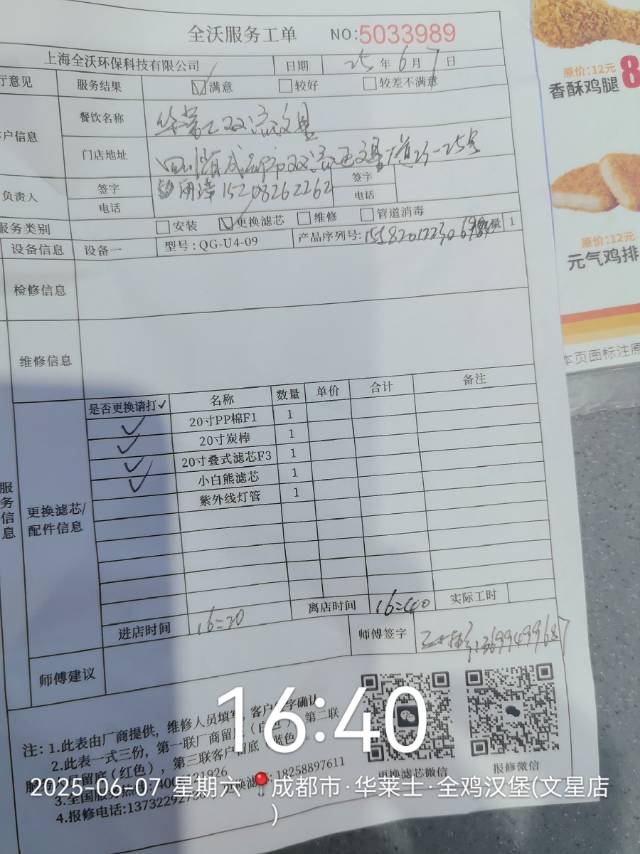 全沃服务工单 NO:5033989
上海全沃环保科技有限公司 日期 25年6月7日
行意见 服务结果 ☑满意 □较好 □较差不满意
户信息 餐饮名称 华莱士双流文星
门店地址 四川省成都市双流区文星大道23-25号
负责人 签字 签字
电话 15208262262 电话
服务类别 □安装 ☑更换滤芯 □维修 □管道消毒
设备信息 设备一 型号:QG-U4-09 产品序列号: 数量 1
检修信息
维修信息
是否更换请打✓ 名称 数量 单价 合计 备注
✓ 20寸PP棉F1 1
✓ 20寸炭棒 1
✓ 20寸叠式滤芯F3 1
✓ 小白熊滤芯 1
紫外线灯管 1
服务信息 更换滤芯/配件信息
进店时间 16:20 离店时间 16:40 实际工时
师傅建议 师傅签字 13699499687
注:1.此表由厂商提供,维修人员填写,客户签字确认
2.此表一式三份,第一联厂商留底(白色),第二联
留底(红色),第三联客户留底(蓝色)
3.全国服 18258897611
4.报修电话:13732927
更换滤芯微信 报修微信
16:40
2025-06-07 星期六 成都市·华莱士·全鸡汉堡(文星店
)
原价:12元
香酥鸡腿 8
原价:12元
元气鸡排
本页面标注原